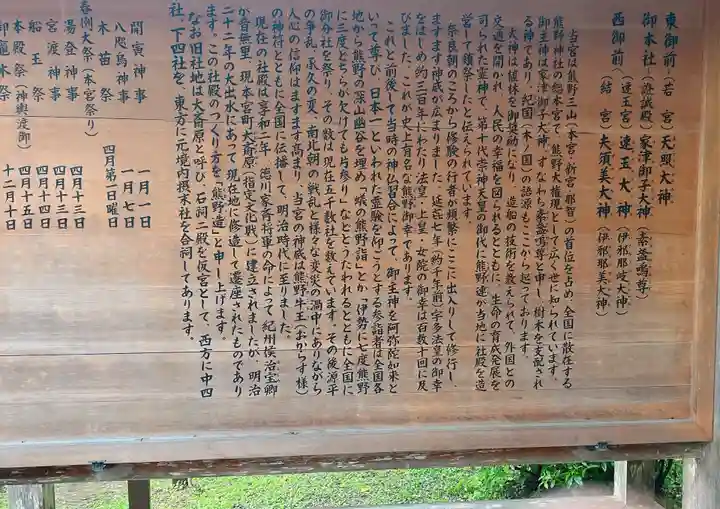 東御前-(若宮)天照大神
御本社-證誠殿(家津御子大神(素盞嗚尊)
西御前(速玉宮)速玉大神(伊邪那岐大神)
(結宮)夫須美大神(伊邪那美大神)
当宮は熊野三山(本宮・新宮・那智)の首位を占め、全国に散在する
熊野神社の総本宮で、熊野大権現として広く世に知られています。
御主神は家津御子大神、すなわち素盞嗚尊と申し、樹木を支配され
る神であり、紀国(木ノ国)の語源もここから起っております。
大神は植林を御奨励になり、造船の技術を教えられて、外国との
交通を開かれ、人民の幸福を図られるとともに、生命の育成発展を
司られた霊神で、第十代崇神天皇の御代に熊野連が当地に社殿を造
営して鎮祭したと伝えられています。
奈良朝のころから修験の行者が頻繁にここに出入りして修行し、
ますます神威が広まりました。延喜七年(約千年前)宇多法皇の御幸
をはじめ約三百年にわたり法皇・上皇・女院の御幸は百数十回に及
びました。これが史上有名な熊野御幸であります。
これと前後して当時の神仏習合によって、御主神を阿弥陀如来と
いって尊び、日本一といわれた霊験を仰ごうとする参詣者は全国各
地から熊野の深山幽谷を埋め「蟻の熊野詣」とか「伊勢に七度熊野
に三度どちらが欠けても片参り」などとうたわれるとともに全国に
御分社を祭り、その数は現在五千数社を数えています。その後源平
の争乱、承久の変、南北朝の戦乱と様々な変災の渦中にありながら
人心の信仰はますます高まり、当宮の神威は熊野牛王(おからす様)
の神符とともに全国に伝播して、明治時代に至りました。
現在の社殿は享和二年、徳川家斉将軍の命によって紀州侯治宝卿
が音無里、現本宮町大斎原(指定文化戦)に建立されましたが、明治
二十二年の大出水にあって現在地に修造して遷座されたものであり
ます。この社殿のつくり方を「熊野造」と申し上げます。
なお旧社地は大斎原と呼び、石祠二殿を仮宮として、西方に中四
社、下四社を、東方に元境内摂末社を合祠してあります。
開寅神事 一月一日
八咫烏神事 一月七日
木苗祭 四月第一日曜日
春例大祭(本宮祭り)
船玉祭
湯登神事 四月十三日
宮渡神事 四月十三日
四月十四日
本殿祭(神輿渡御) 四月十五日
御竈木祭 十二月十日